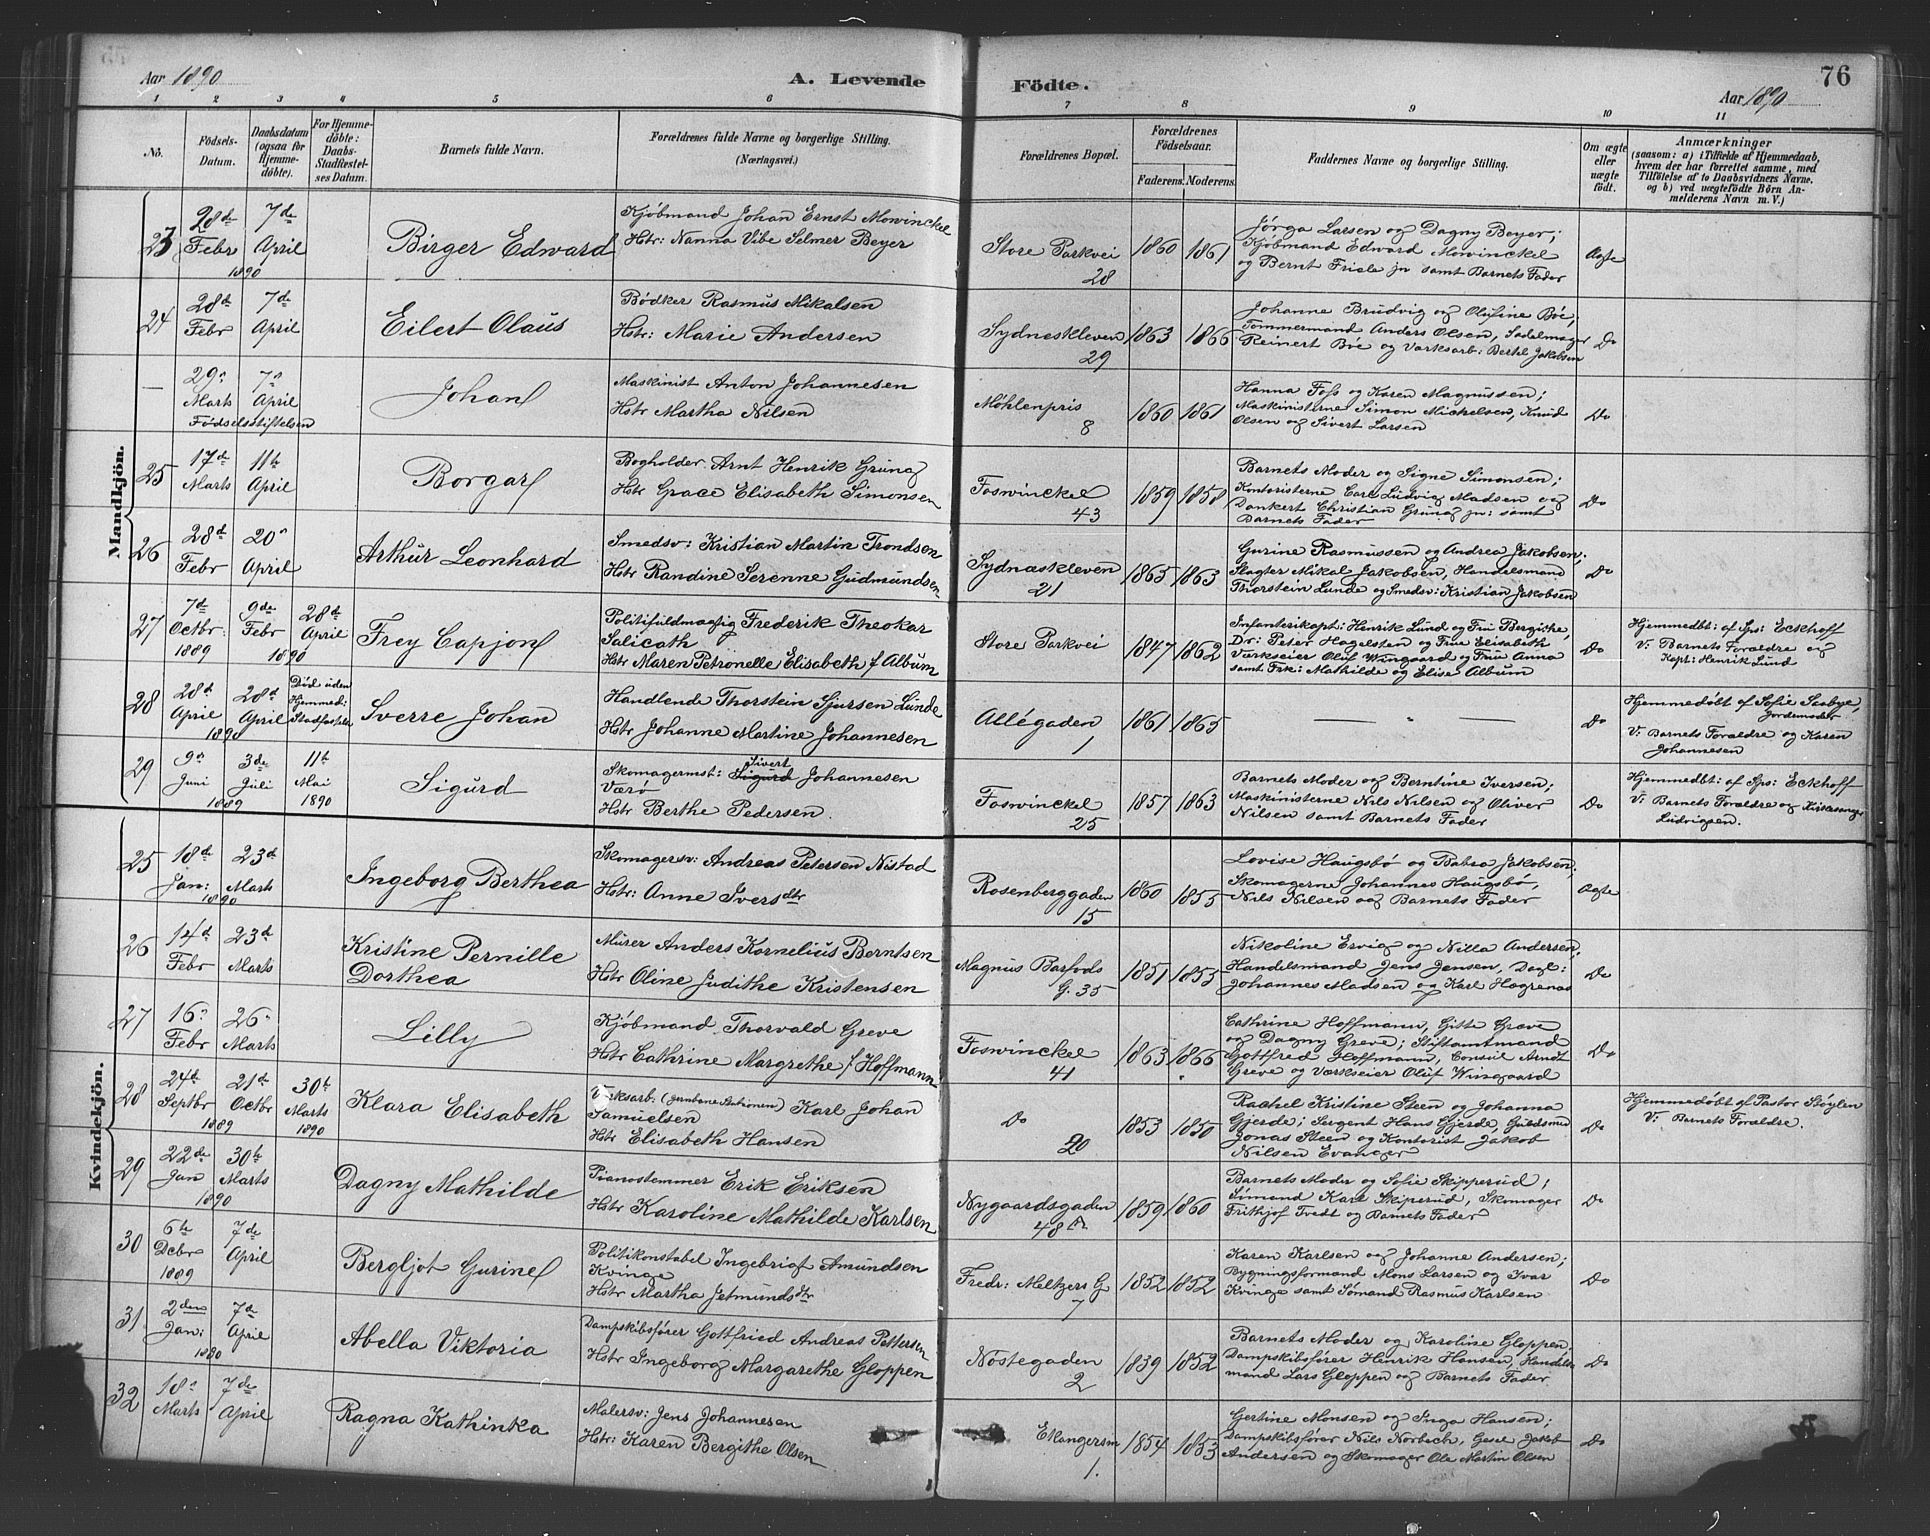 Aar 1890
A. Levende
Födte.
Aar 1890
76
1 2 3 4 5 6 7 8 9 10 11
No.
Födsels-
Datum.
Daabsdatum
(ogsaa for
Hjemme-
döbte).
For Hjemme-
döbte:
Daabs-
Stadfæstel-
ses Datum.
Barnets fulde Navn.
Forældrenes fulde Navne og borgerlige Stilling.
(Næringsvei.)
Forældrenes Bopæl.
Forældrenes
Födselsaar.
Faderens. Moderens.
Faddernes Navne og borgerlige Stilling.
Om ægte
eller
uægte
födt.
Anmærkninger
(saasom: a) i Tilfælde af Hjemmedaab,
hvem der har forrettet samme, med
Tilföielse af to Daabsvidners Navne,
og b) ved uægtefödte Börn An-
melderens Navn m. V.)
Mandkjön.
23
28de Febr 1890
7de April
Birger Edward
Kjøbmand Johan Ernst Mowinckel
Hstr: Nanna Vibe Selmer Beyer
Store Parkvei
28
1860 1861
Jørga Larsen og Dagny Beyer;
Kjøbmand Edward Mowinckel
og Bernt Friele jn samt Barnets Fader
Ægte
24
28de Febr
7de April
Eilert Olaus
Bødker Rasmus Mikalsen
Hstr: Marie Andersen
Sydneskleven
29
1863 1866
Johanne Brudvig og Olufine Bøe;
Tømmermand Anders Olsen, Sadelmager
Reinert Bøe og Værksarb: Bertel Jakobsen
Do
—
29" Marts
7" April
Fødselsstiftelsen
Johan
Maskinist Anton Johannesen
Hstr Martha Nilsen
Møhlenpris
8
1860 1861
Hanna Foss og Karen Magnussen;
Maskinisterne Simon Mickelsen, Knud
Olsen og Sivert Larsen
Do
25
17de Marts
11te April
Borgar
Bogholder Arnt Henrik Grung
Hstr: Grace Elisabeth Simonsen
Foswinckel
43
1859 1858
Barnets Moder og Signe Simonsen;
Kontoristerne Carl Ludvig Madsen og
Dankert Christian Grung jn: samt
Barnets Fader
Do
26
28de Febr
20" April
Arthur Leonhard
Smedsv: Kristian Martin Trondsen
Hstr Randine Serenne Gudmundsen
Sydnæskleven
21
1865 1863
Gurine Rasmussen og Andrea Jakobsen;
Slagter Mikal Jakobsen, Handelsmand
Thorstein Lunde og Smedsv: Kristian Jakobsen
Do
27
7de Octbr: 1889
9de Febr
28de April
1890
Frey Capjon
Politifuldmægtig Frederik Theokar
Salicath
Hstr Maren Petronelle Elisabeth f Album
Store Parkvei
1847 1862
Infanterikapt: Henrik Lund og Fru Bergithe,
Dr: Peter Hagelsten og Frue Elisabeth
Værkseier Oluf Wingaard og Frue Anna
samt Frk: Mathilde og Elise Album
Do
Hjemmedbt: af Sps: Eckhoff
V: Barnets Forældre og
Kapt: Henrik Lund
28
28de April
28de April
1890
Død uden
Hjemmed:
Stadfæstelse
Sverre Johan
Handlende Thorstein Sjursen Lunde
Hstr Johanne Martine Johannesen
Allégaden
1
1861 1865
— " —
Do
Hjemmedøbt af Sofie Saabye,
Jordemoder
V: Barnets Forældre og Karen
Johannesen
29
9" Juni
3de Juli
1889
11te Mai 1890
Sigurd
Sivert
Skomagermst: Sigurd Johannesen
Værø
Hstr Berthe Pedersen.
Foswinckel
25
1857 1863
Barnets Moder og Berntine Iversen;
Maskinisterne Nils Nilsen og Oliver
Nilsen samt Barnets Fader
Do
Hjemmedbt: af Sps: Eckhoff
V: Barnets Forældre og Kirkesanger
Ludvigsen.
Kvindekjön.
25
18de Jan:
23de Marts
1890
Ingeborg Berthea
Skomagersv: Andreas Petersen Nistad
Hstr: Anne Iversdtr
Rosenberggaden
15
1860 1855
Lovise Haugsbø og Babra Jakobsen;
Skomagerne Johannes Haugsbø,
Nils Nilsen og Barnets Fader
Ægte
26
14de Febr
23de Marts
Kristine Pernille
Dorthea
Murer Anders Kornelius Berntsen
Hstr Oline Judithe Kristensen
Magnus Barfods
G. 35
1851 1853
Nikoline Ervig og Nilla Andersen;
Handelsmand Jens Jensen, Dagl:
Johannes Madsen og Karl Høgrenæs
Do
27
16" Febr
26" Marts
Lilly
Kjøbmand Thorvald Greve
Hstr Cathrine Margrethe f Hoffmann
Foswinckel
41
1863 1866
Cathrine Hoffmann, Gitte Greve
og Dagny Greve; Stiftsamtmand
Gottfred Hoffmann, Consul Arndt
Greve og Værkseier Oluf Wingaard
Do
28
24de Septbr
21de Octbr
1889
30te Marts 1890
Klara Elisabeth
Værksarb: (Jernbane Stationen) Karl Johan
Samuelsen
Hstr Elisabeth Hansen
Do
20
1853 1850
Rachel Kristine Steen og Johanna
Gjerde; Sergent Hans Gjerde, Guldsmed
Jonas Steen og Kontorist Jakob
Nilsen Evanger
Do
Hjemmedøbt af Pastor Støylen
V: Barnets Forældre.
29
22de Jan
30te Marts
1890
Dagny Mathilde
Pianostemmer Erik Eriksen
Hstr Karoline Mathilde Karlsen
Nygaardsgaden
48 A
1859 1860
Barnets Moder og Sofie Skipperud;
Sømand Karl Skiperud, Skomager
Frithjof Tvedt og Barnets Fader
Do
30
6te Dcbr 1889
7de April
Bergljot Gurine
Politikonstabel Ingebrigt Amundsen
Kvinge
Hstr Martha Jetmundsdtr
Fredr: Meltzers G
7
1852 1852
Karen Karlsen og Johanne Andersen;
Bygningsformand Mons Larsen og Ivar
Kvinge samt Sømand Rasmus Karlsen
Do
31
2den Jan:
7de April
1890
Abella Viktoria
Dampskibsfører Gottfried Andreas Pettersen
Hstr Ingeborg Margarethe Gloppen
Nøstegaden
2
1839 1852
Barnets Moder og Karoline Gloppen,
Dampskibsfører Henrik Hansen, Handels
mand Lars Gloppen og Barnets Fader
Do
32
18" Marts
7de April
Ragna Kathinka
Malersv: Jens Johannesen
Hstr: Karen Bergithe Olsen
Ekangersm
1.
1854 1853
Gertine Monsen og Inga Hansen;
Dampskibsfører Nils Norbech, Gesel Jakob
Andersen og Skomager Ole Martin Olsen
Do